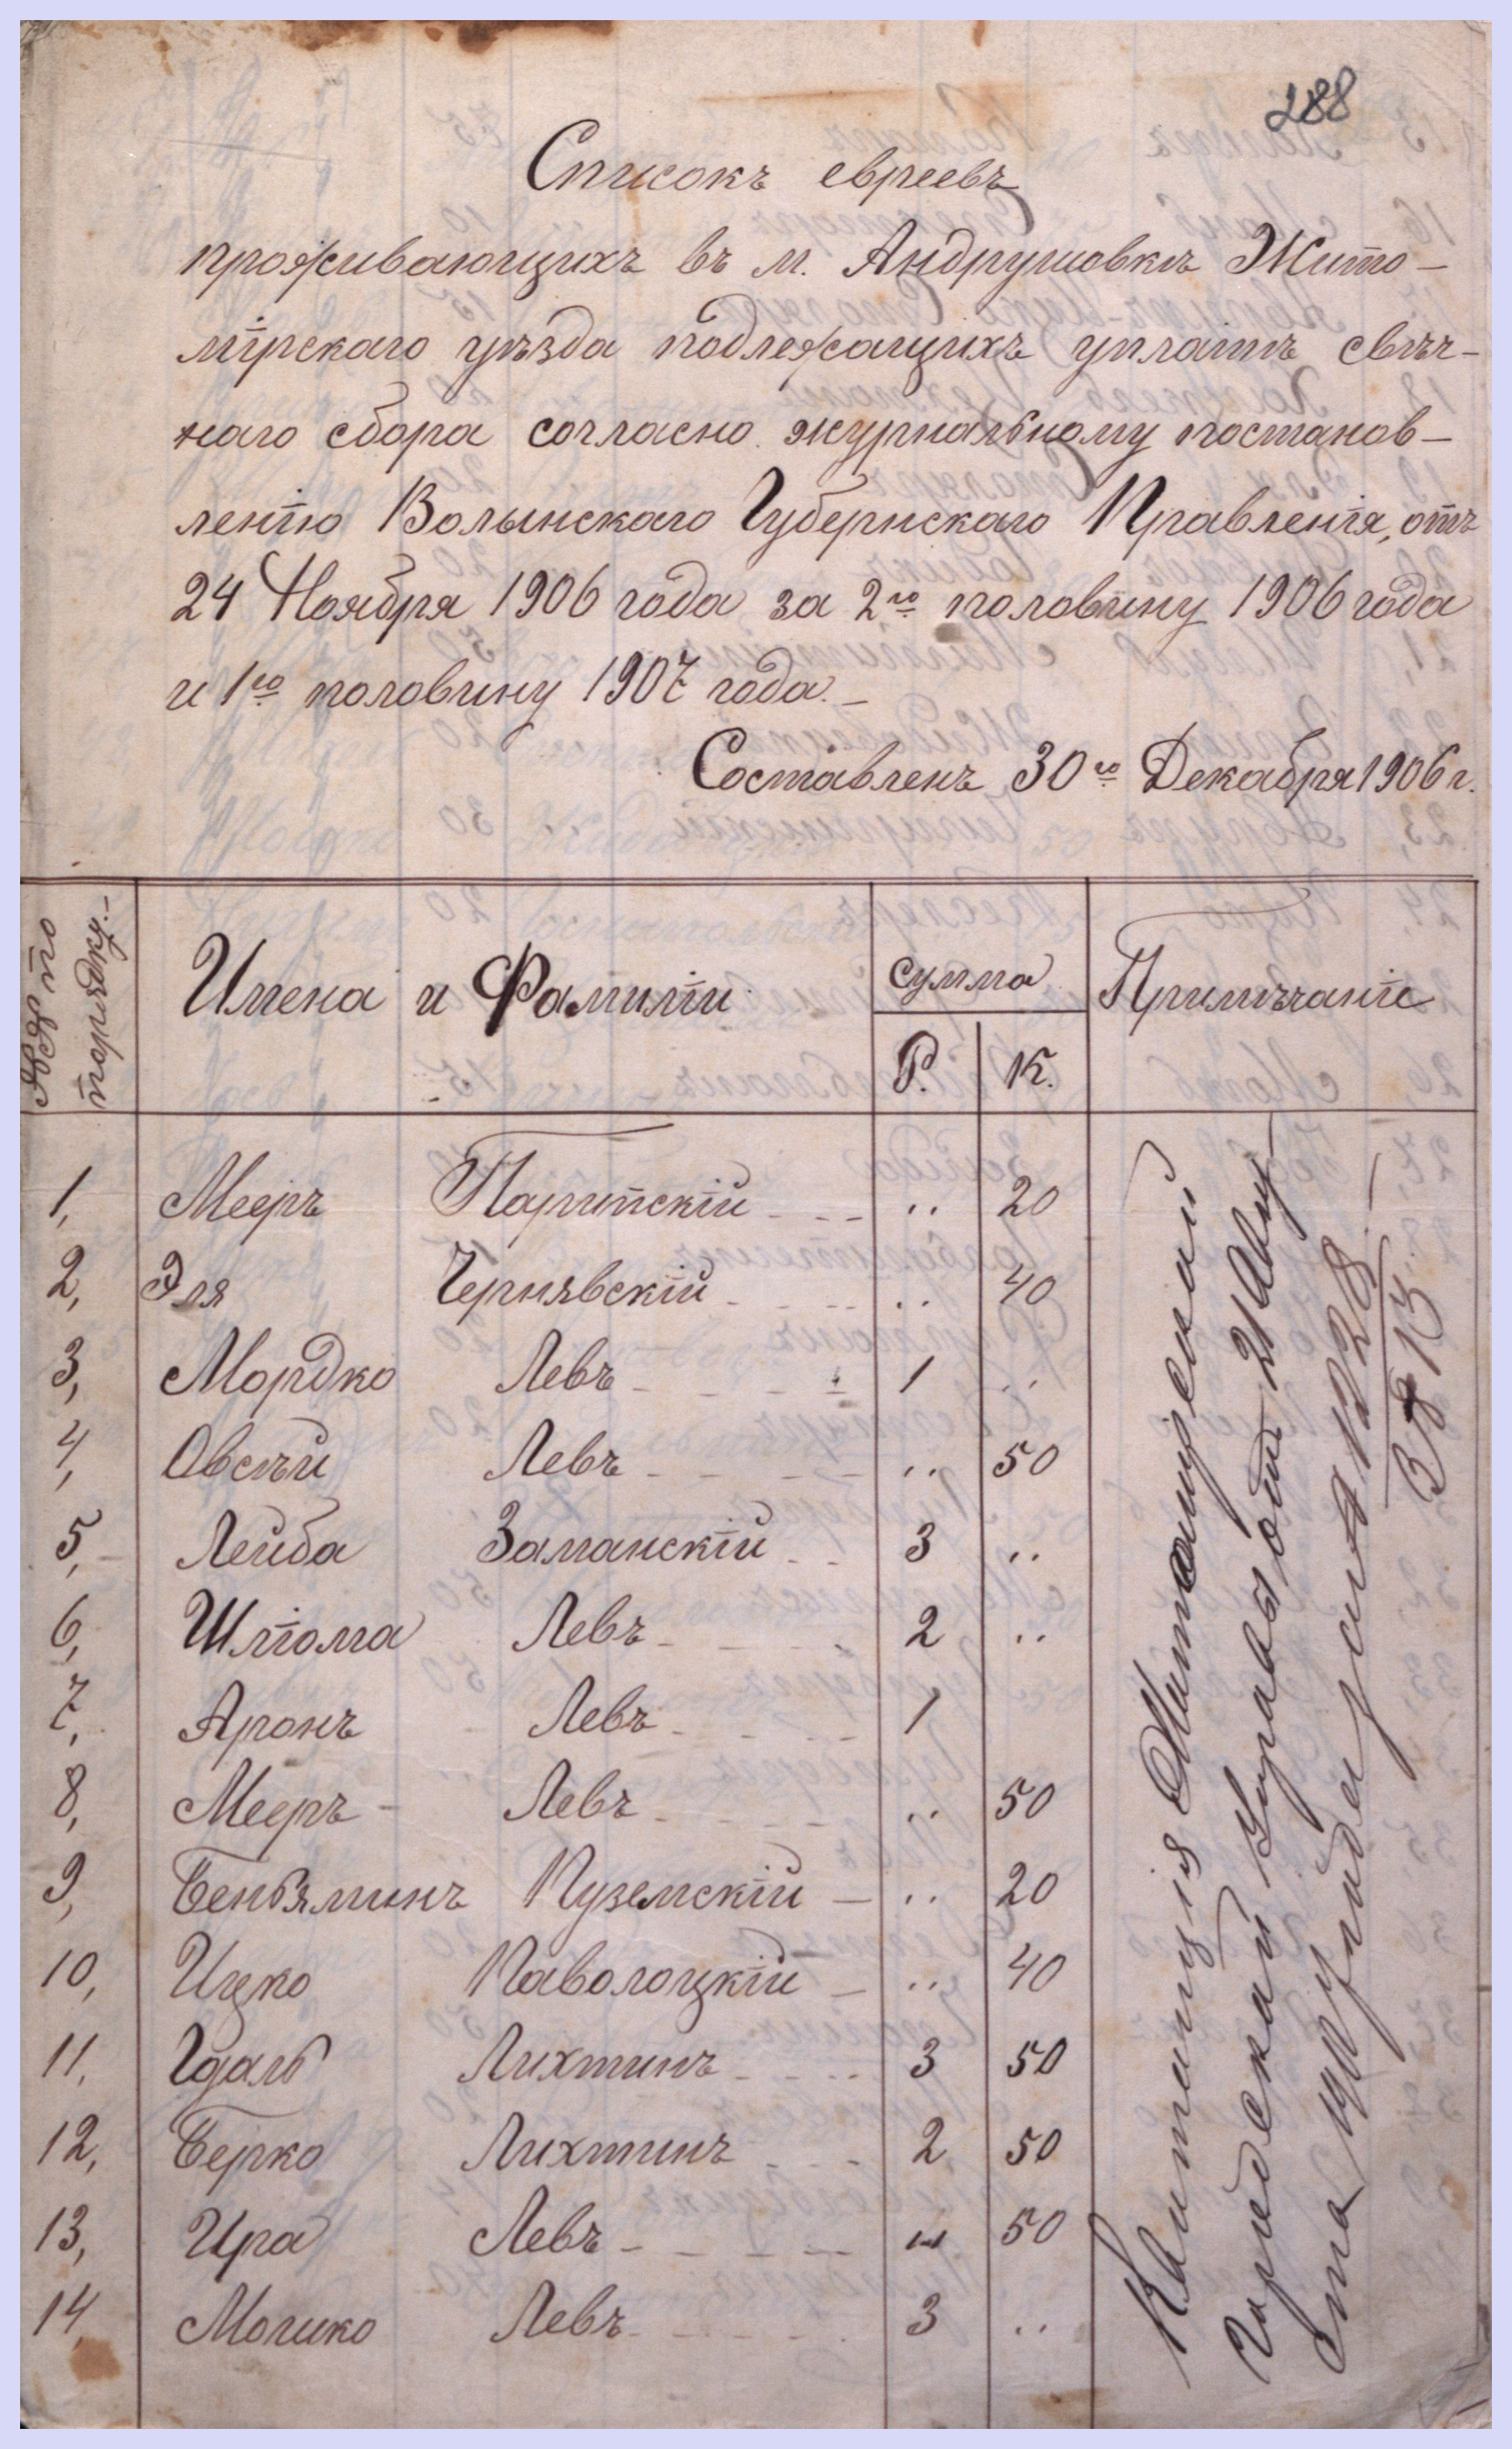 288
Списокъ евреевъ
проживающихъ въ м. Андрушовкѣ Жито-
мірскаго уѣзда подлежащихъ уплатѣ свѣч-
наго сбора согласно журнальному постанов-
ленію Волынскаго Губернскаго Правленія, отъ
24 Ноября 1906 года за 2ю половину 1906 года
и 1ю половину 1907 года.-
Составленъ 30го Декабря 1906 г.
№№ по порядку.- Имена и Фамиліи Сумма Р. К. Примѣчаніе
1, Мееръ Парипскій - - - .. 20
2, Эля Чернявскій - - - - .. 40
3, Мордко Левъ - - - - - 1 ..
4, Овсѣй Левъ - - - - - .. 50
5,- Лейба Заманскій - - 3 ..
6, Шліома Левъ - - - - 2 ..
7, Аронъ Левъ - - - - 1
8, Мееръ - Левъ - - - - - .. 50
9, Беньяминъ Куземскій - .. 20
10, Ицко Паволоцкій - .. 40
11, Гдаль Лихтинъ - - - .. 3 50
12, Берко Лихтинъ - - - 2 50
13, Ира Левъ - - - - - „ 50
14, Мошко Левъ - - - - - 3 ..
Квитанція Житомірской
Городской Управы отъ 31 Авгу
ста 1907 года за № 1228.-